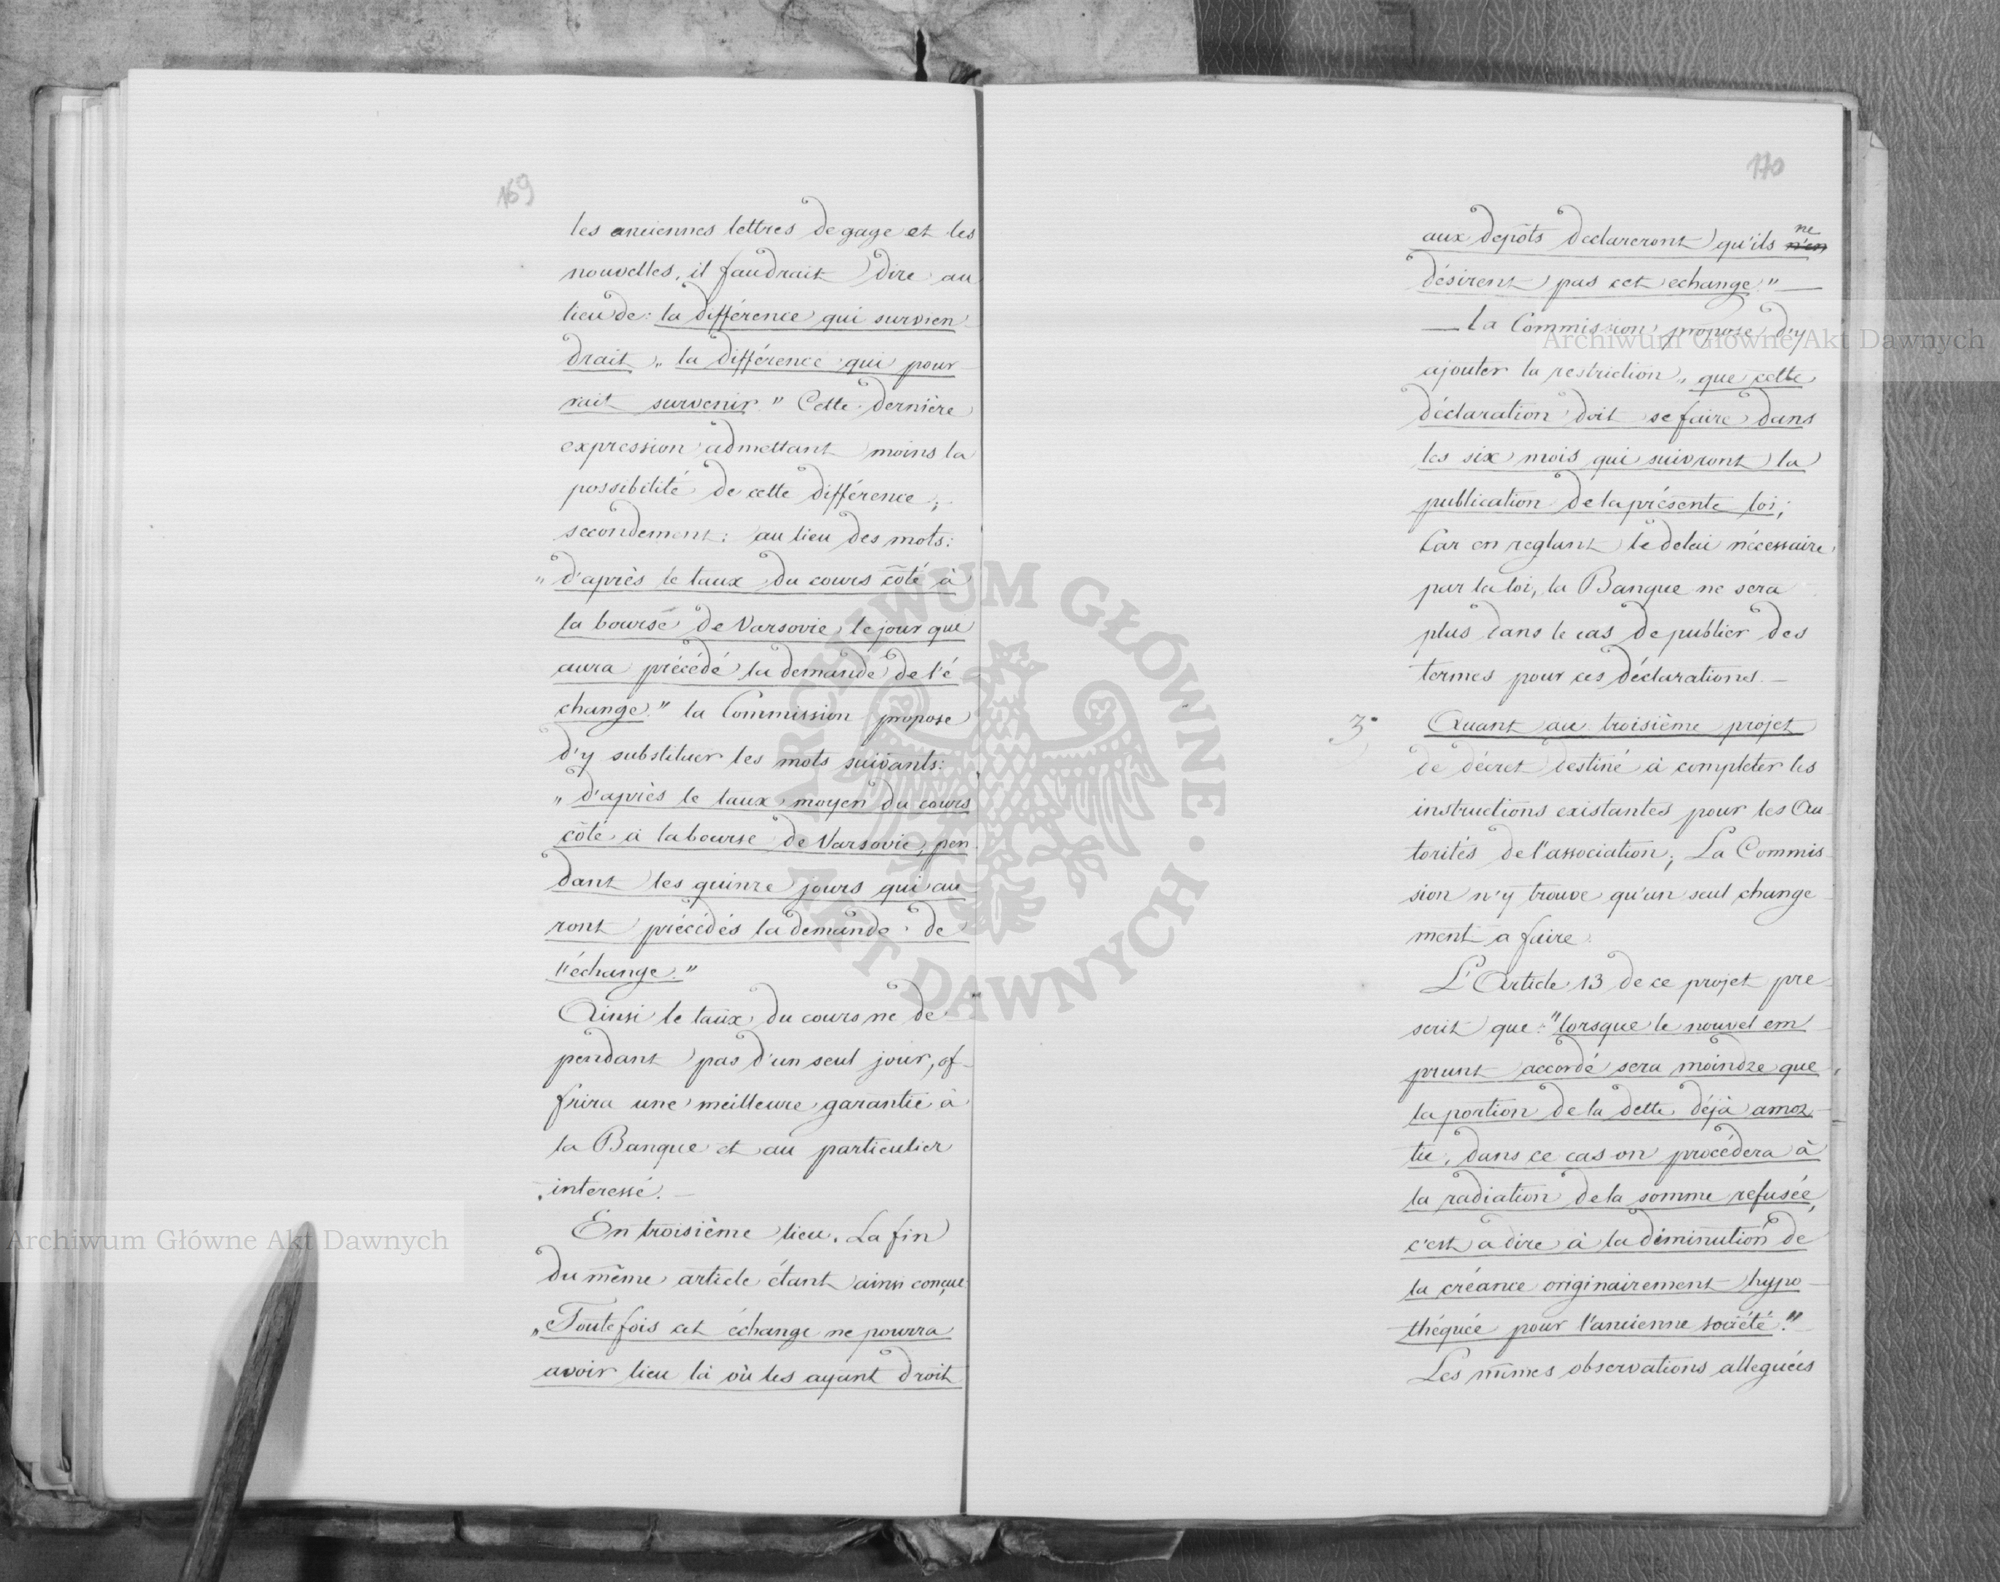 169
les anciennes lettres de gage et les
nouvelles, il faudrait dire au
lieu de: la différence qui survien
drait „ la différence qui pour
rait survenir." Cette dernière
expression admettant moins la
possibilité de cette différence;
secondement: au lieu des mots:
„ d'après le taux du cours côté à
la bourse de Varsovie le jour que
aura précédé la demande de l'é
change." la Commission propose
d'y substituer les mots suivants:
„ d'après le taux moyen du cours
côté à la bourse de Varsovie, pen
dant les quinze jours qui au
ront précédés la demande de
l'échange."
Ainsi le taux du cours ne dé
pendant pas d'un seul jour, of-
frira une meilleure garantie à
la Banque et au particulier
interessé. —
En troisième lieu. La fin
du même article étant ainsi conçue
„ Toutefois cet échange ne pourra
avoir lieu là où les ayant droit
170
aux depôts declareront qu'ils ne n'en
désirent pas cet echange." —
— la Commission propose d'y
ajouter la restriction „ que cette
déclaration doit se faire dans
les six mois qui suivront la
publication de la présente loi;
Car en reglant le delai nécessaire
par la loi, la Banque ne sera
plus dans le cas de publier des
termes pour ces déclarations. —
3° Quant au troisième projet
de décret destiné à completer les
instructions existantes pour les Au
torités de l'association; La Commis
sion n'y trouve qu'un seul change
ment a faire.
L'Article 13 de ce projet pre
scrit que: "lorsque le nouvel em
prunt accordé sera moindre que
la portion de la dette déjà amor
tie, dans ce cas on procédera à
la radiation de la somme refusée,
c'est a dire à la diminution de
la créance originairement hypo
théquée pour l'ancienne société." —
Les mêmes observations alleguées
Archiwum Główne Akt Dawnych
Archiwum Główne Akt Dawnych
ARCHIWUM GŁÓWNE · AKT DAWNYCH ·